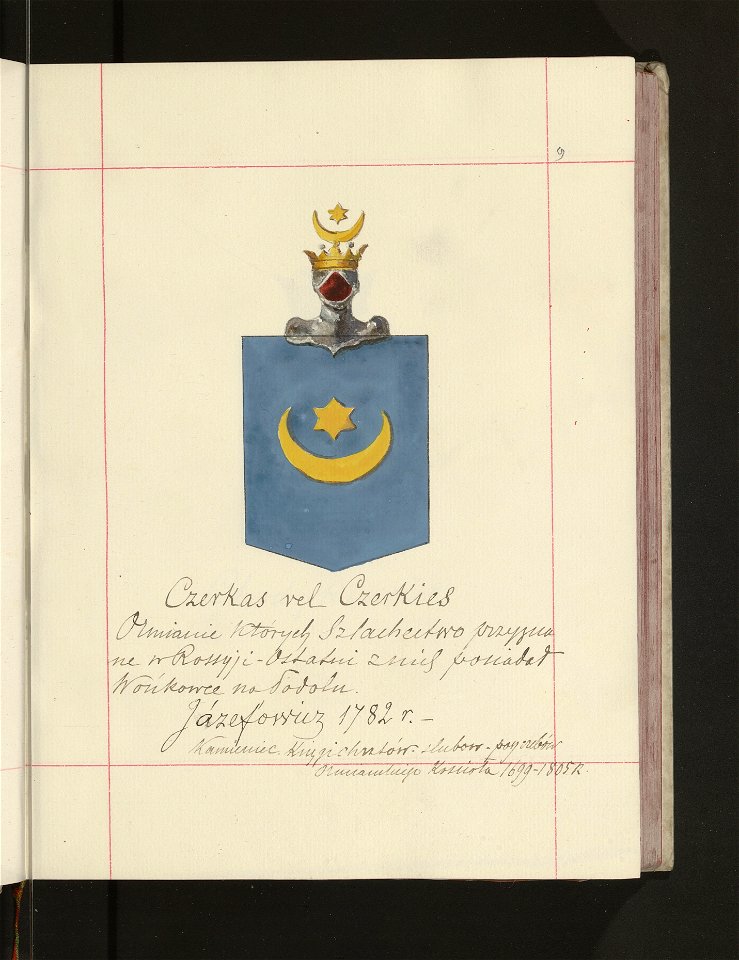 9
Czerkas vel Czerkies
Ormianie których Szlachectwo przyzna
ne w Rossyji - Ostatni z nich posiadał
Wońkowce na Podolu.
Józefowicz 1782 r. -
Kamieniec Księgi chrztów - slubow - pogrzebów
Kościoła 1699-1805 r.